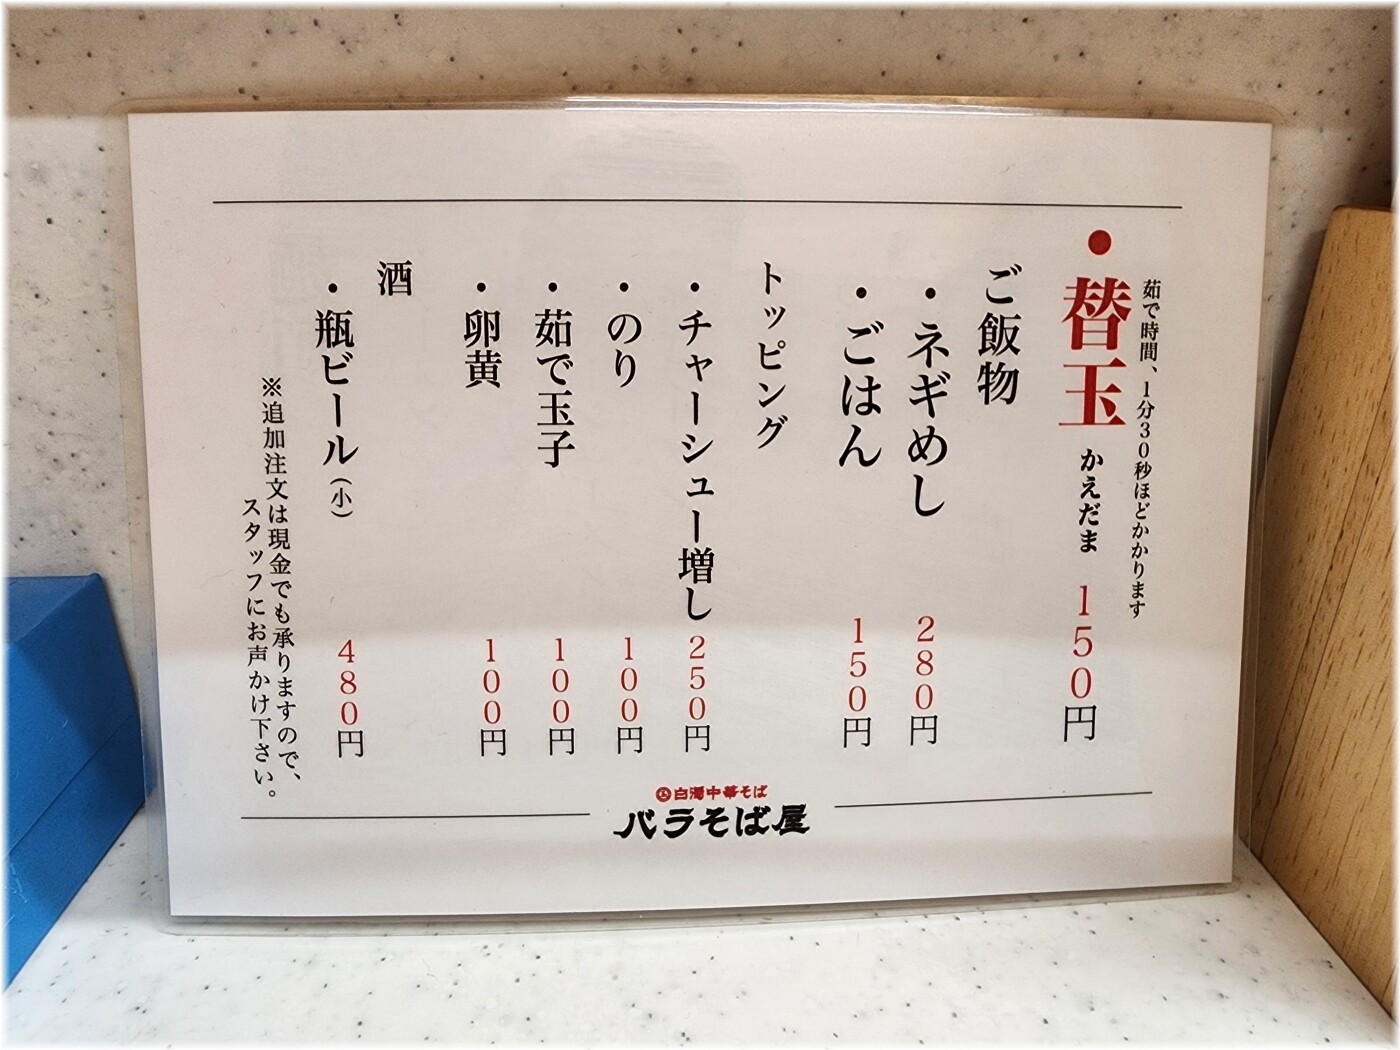 茹で時間、1分30秒ほどかかります
・替玉 かえだま 150円
ご飯物
・ネギめし 280円
・ごはん 150円
トッピング
・チャーシュー増し 250円
・のり 100円
・茹で玉子 100円
・卵黄 100円
酒
・瓶ビール(小) 480円
※追加注文は現金でも承りますので、
スタッフにお声かけ下さい。
白濁中華そば
バラそば屋